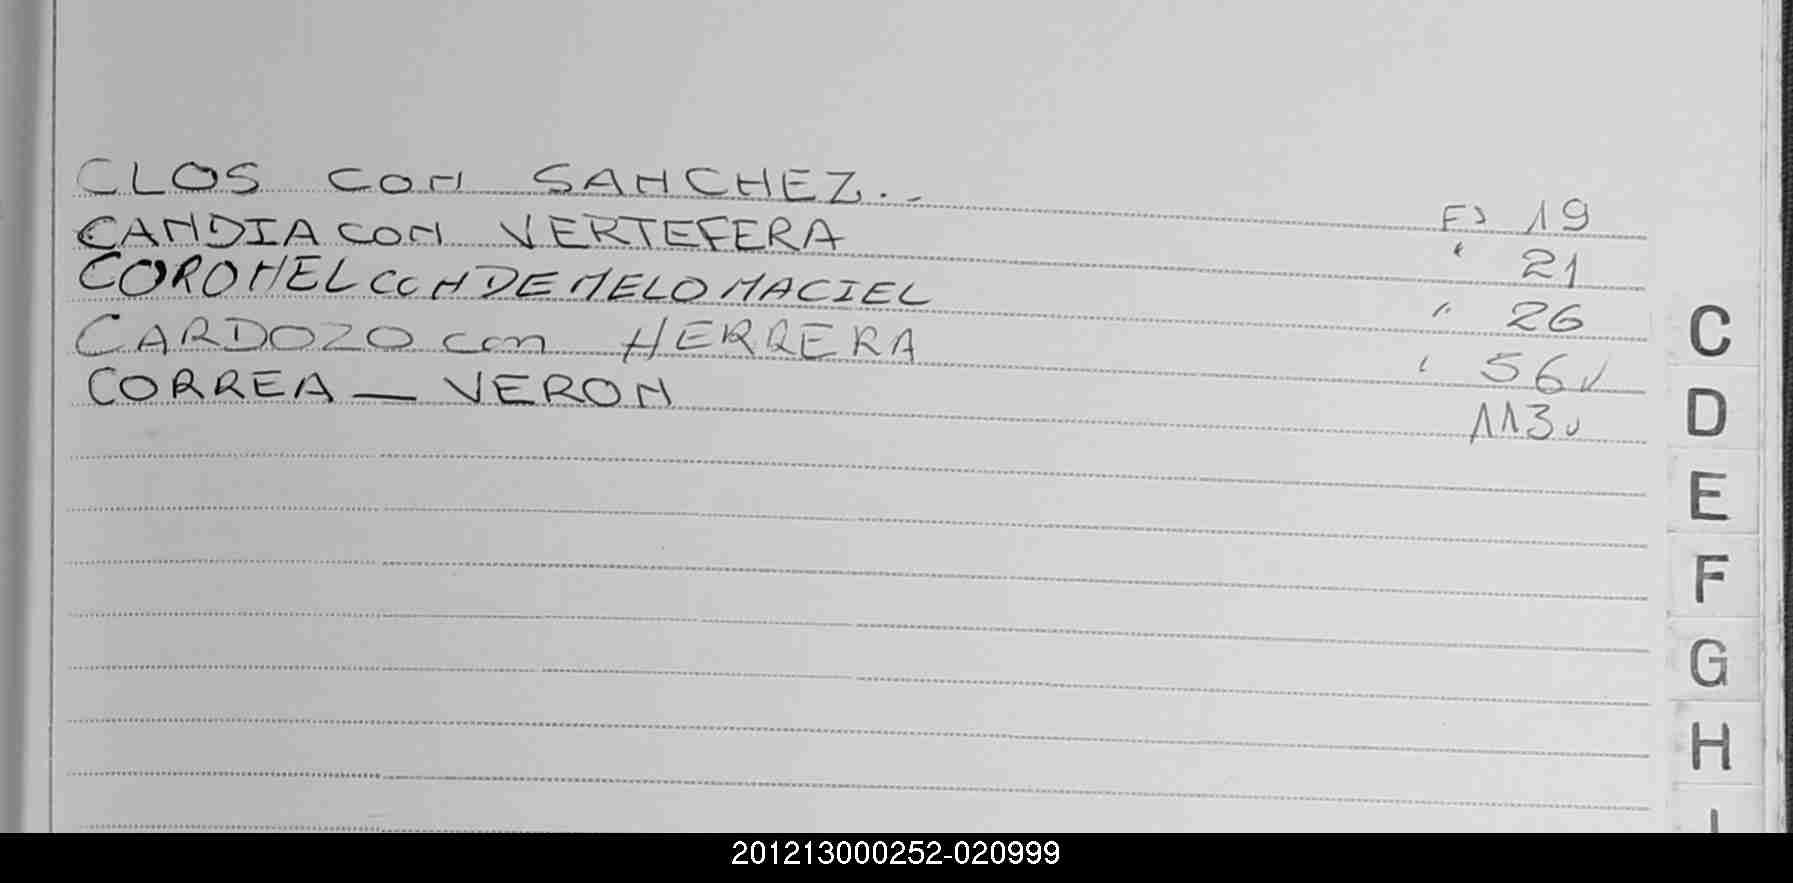 CLOS con SANCHEZ.- Fs 19
CANDIA con VERTEFERA " 21
CORONEL con DE MELO MACIEL " 26
CARDOZO con HERRERA " 56v
CORREA — VERON 113v
C
D
E
F
G
H
I
201213000252-020999